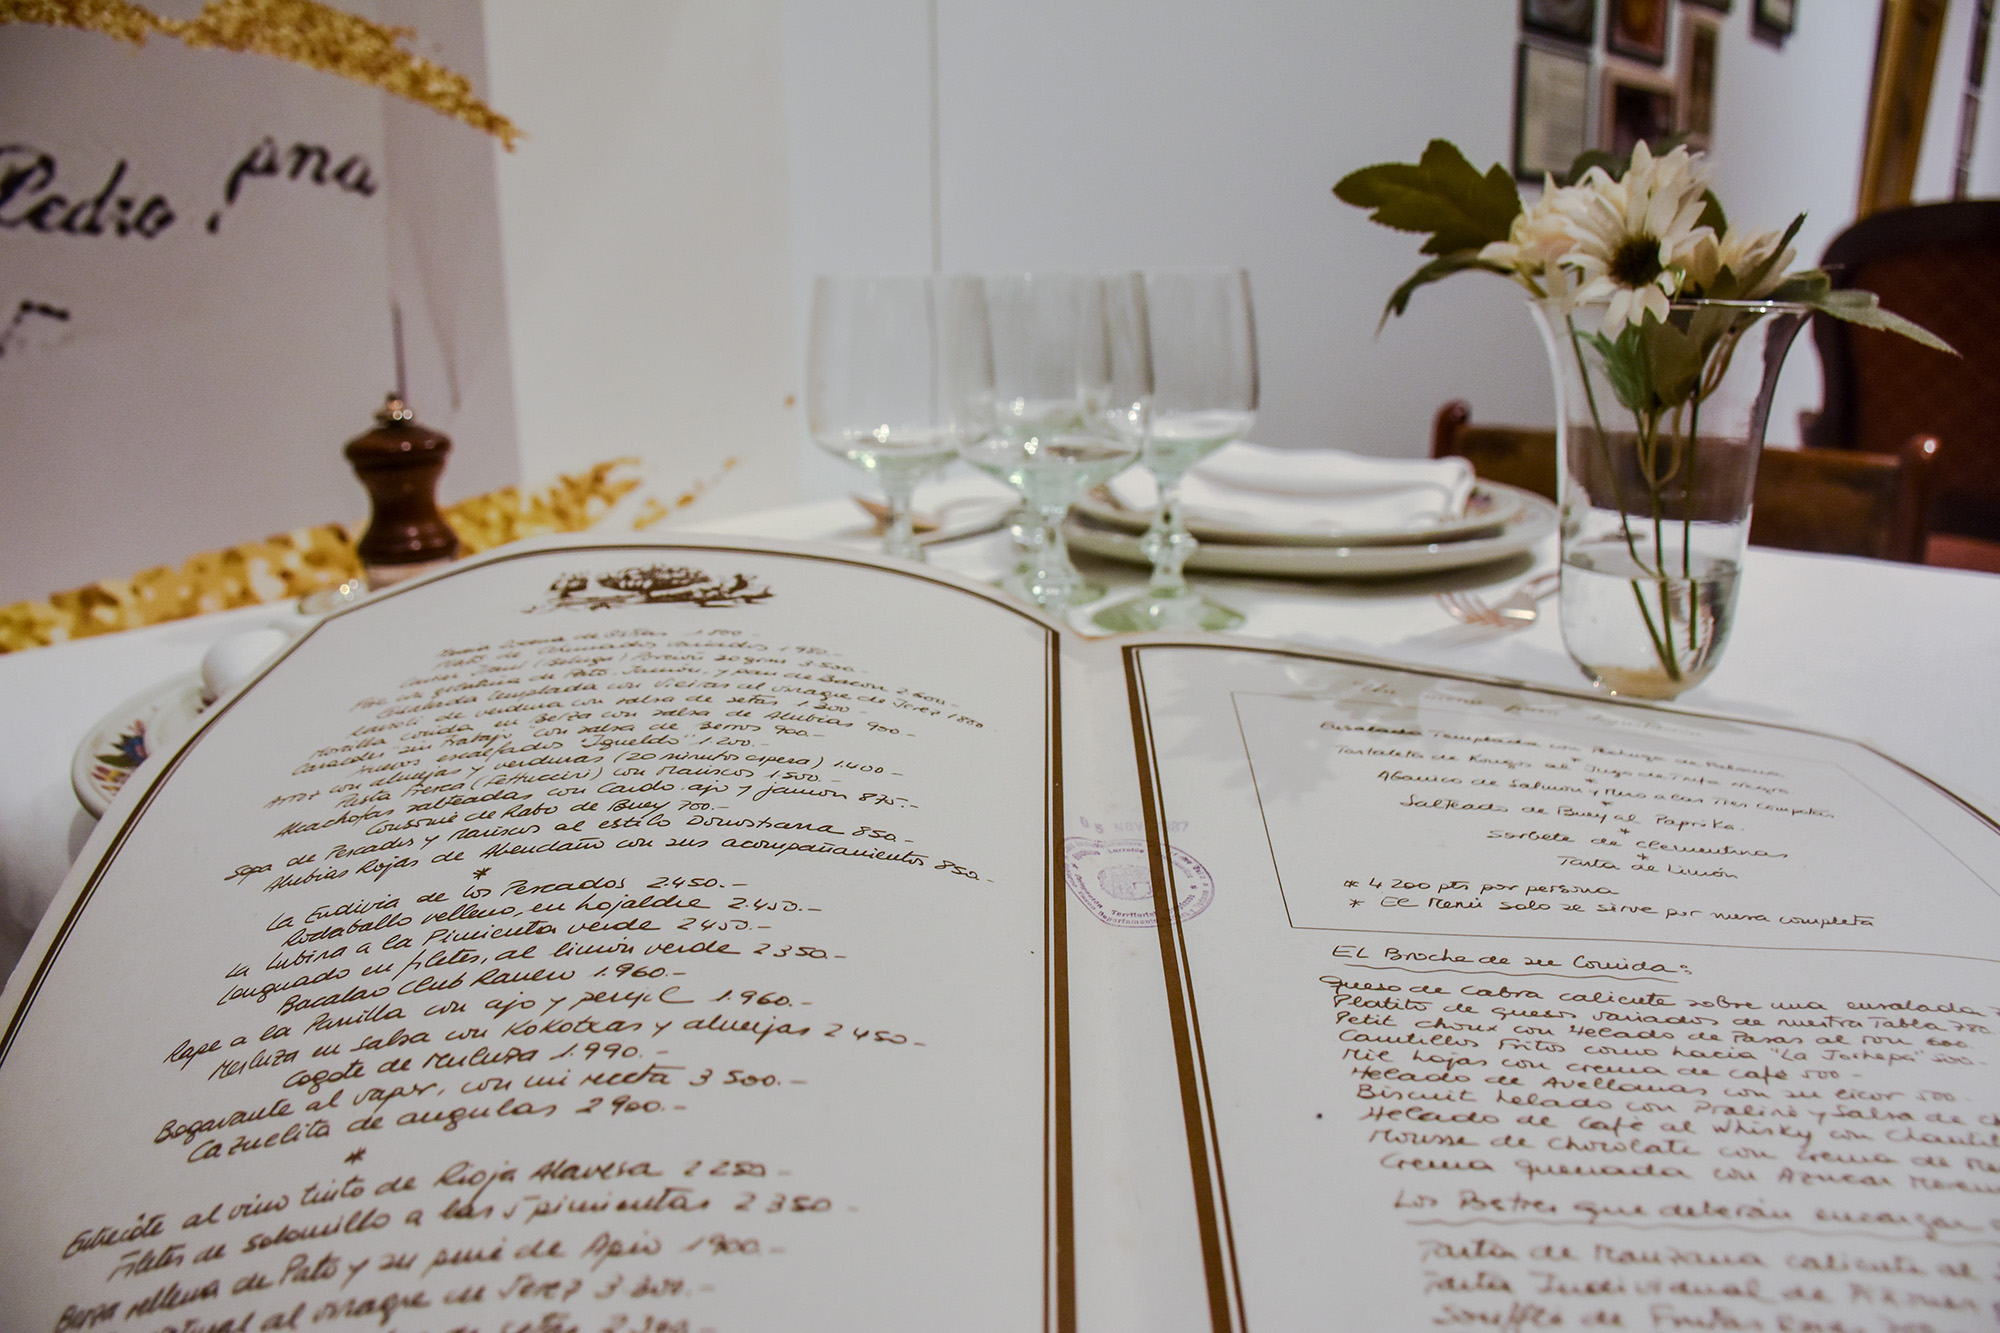 Pedro
ana
1.800.-
Plato de Ahumados variados 1.980.-
Caviar Iraní (Beluga) Porción 30 grms 3.500.-
gelatina de Pato, Jamón, y pan de Bacon 2.600.-
Ensalada templada con Vieiras al vinagre de Jerez 1.800
Ravioli de verdura con salsa de setas 1.200
Morcilla cocida en Berza con salsa de Alubias 900.-
Caracoles "sin trabajo" con salsa de Berros 900.-
Huevos escalfados "Igueldo" 1.200.-
Arroz con almejas y verduras (20 minutos espera) 1.400.-
Pasta Fresca (Fettuccini) con Mariscos 1.500.-
Alcachofas salteadas con Cardo, ajo y jamón 875.-
Consomé de Rabo de Buey 700.-
Sopa de Pescados y Mariscos al estilo Donostiarra 850.-
Alubias Rojas de Abendaño con sus acompañamientos 850.-
*
La Endivia de los Pescados 2.450.-
Rodaballo relleno, en hojaldre 2.450.-
La Lubina a la Pimienta verde 2450.-
Lenguado en filetes, al limón verde 2350.-
Bacalao Club Ranero 1.960.-
Rape a la Parrilla con ajo y perejil 1.960.-
Merluza en salsa con Kokotxas y almejas 2450.-
Cogote de Merluza 1.990.-
Bogavante al vapor, con mi receta 3500.-
Cazuelita de angulas 2900.-
*
Entrecôte al vino tinto de Rioja Alavesa 2250.-
Filetes de solomillo a las 5 pimientas 2350.-
Berza rellena de Pato y su puré de Apio 1900.-
al vinagre de Jerez 3.200.-
de setas 2.300.-
05 NOV 1987
Territorial
Ensalada Templada con Pechuga de Paloma
*
Tartaleta de Hongos al Jugo de Trufa Negra
*
Abanico de Salmón y Mero a las Tres Compotas
*
Salteado de Buey al Paprika.
*
Sorbete de Clementinas
*
Tarta de Limón
* 4 200 pts por persona
* El Menú solo se sirve por mesa completa
El Broche de su Comida:
Queso de Cabra caliente sobre una ensalada 7
Platito de quesos variados de nuestra Tabla 780.
Petit choux con Helado de Pasas al ron 600.
Canutillos Fritos como hacía "La Joshepa" 500.-
Mil hojas con crema de café 500.-
Helado de Avellanas con su licor 500.-
Biscuit helado con Praliné y Salsa de ch
Helado de Café al Whisky con Chantil
Mousse de Chocolate con Crema de Me
Crema quemada con Azúcar Moren
Los Postres que deberán encargar
Tarta de Manzana caliente al
Tarta Individual de
Soufflé de Frutas